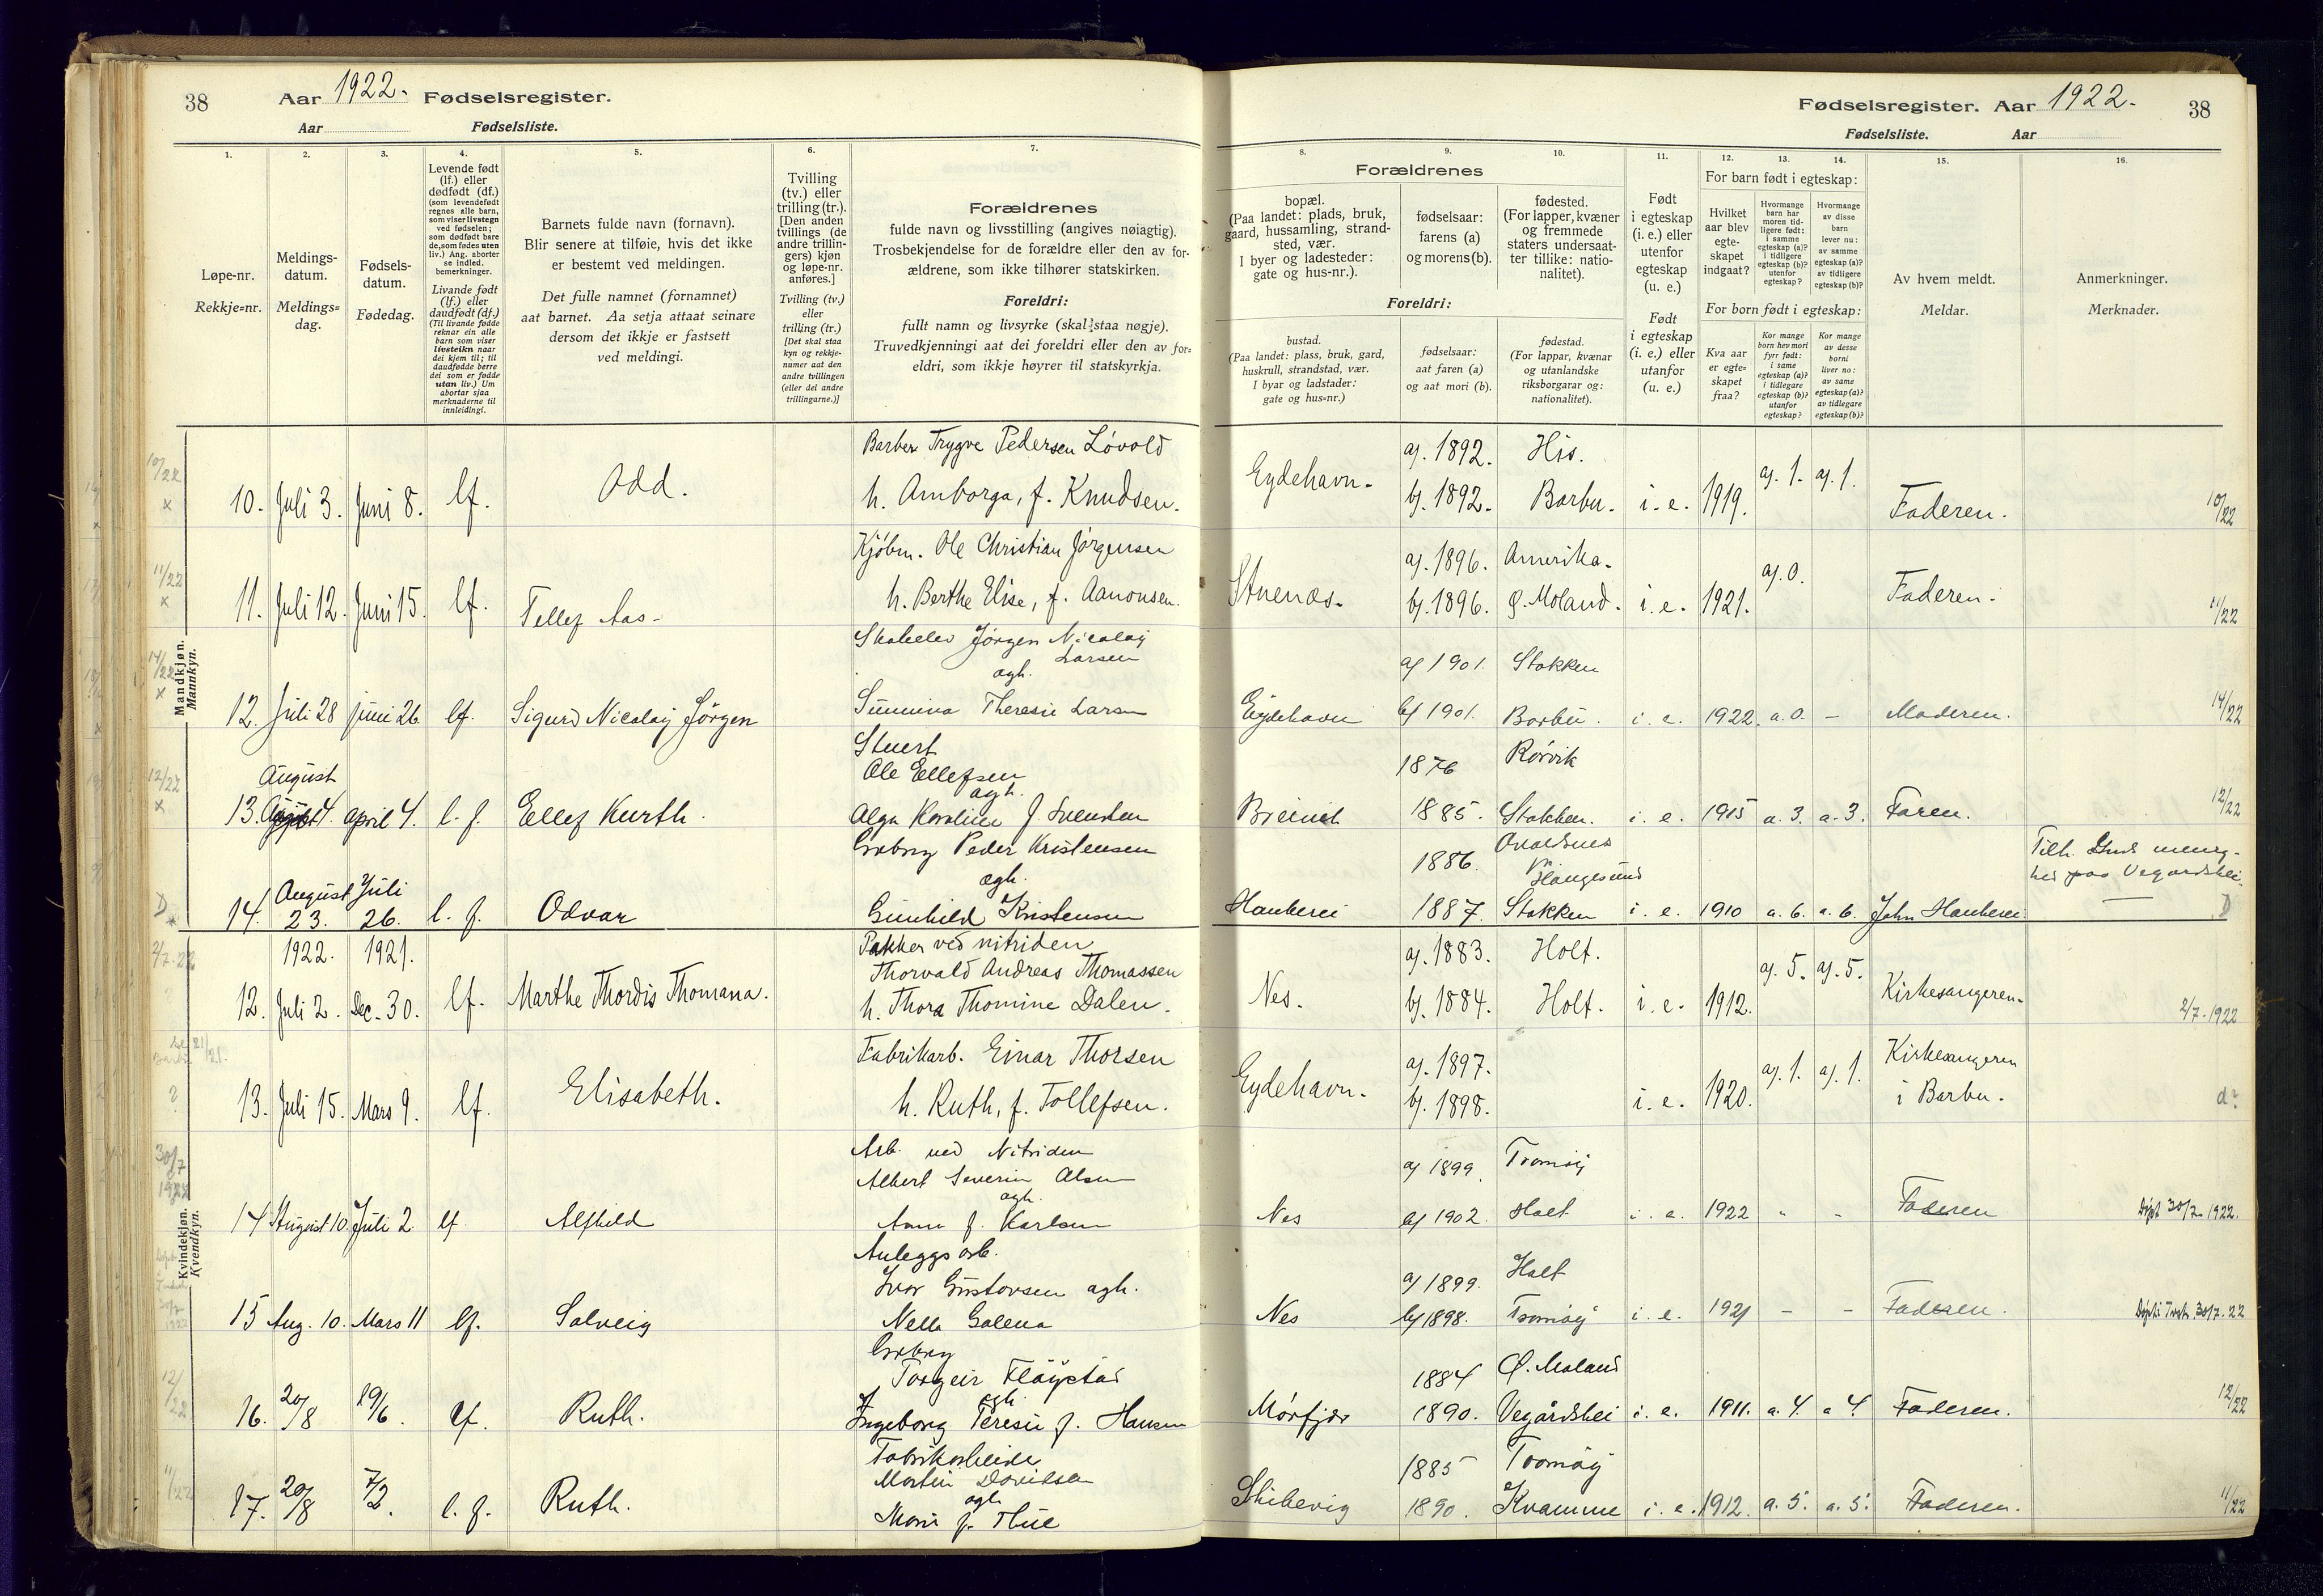 38 Aar 1922. Fødselsregister.
Aar Fødselsliste.
Fødselsregister. Aar 1922. 38
Fødselsliste. Aar
1. 2. 3. 4. 5. 6. 7.
Løpe-nr.
Rekkje=nr.
Meldings-
datum.
Meldings=
dag.
Fødsels-
datum.
Fødedag.
Levende født
(lf.) eller
dødfødt (df.)
(som levendefødt
regnes alle barn,
som viser livstegn
ved fødselen;
som dødfødt bare
de, som fødes uten
liv.) Ang. aborter
se indled.
bemerkninger.
Livande født
(lf.) eller
daudfødt (df.)
(Til livande fødde
reknar ein alle
barn som viser
livsteikn naar
dei kjem til; til
daudfødde berre
dei som er fødde
utan liv.) Um
abortar sjaa
merknaderne til
innleidingi.
Barnets fulde navn (fornavn).
Blir senere at tilføie, hvis det ikke
er bestemt ved meldingen.
Det fulle namnet (fornamnet)
aat barnet. Aa setja attaat seinare
dersom det ikkje er fastsett
ved meldingi.
Tvilling
(tv.) eller
trilling (tr.).
[Den anden
tvillings (de
andre trillin-
gers) kjøn
og løpe-nr.
anføres.]
Tvilling (tv.)
eller
trilling (tr.)
[Det skal staa
kyn og rekkje-
numer aat den
andre tvillingen
(eller dei andre
trillingarne.)]
Forældrenes
fulde navn og livsstilling (angives nøiagtig).
Trosbekjendelse for de forældre eller den av for-
ældrene, som ikke tilhører statskirken.
Foreldri:
fullt namn og livsyrke (skal staa nøgje).
Truvedkjenningi aat dei foreldri eller den av for=
eldri, som ikkje høyrer til statskyrkja.
8. 9. 10. 11. 12. 13. 14. 15. 16.
Forældrenes
bopæl.
(Paa landet: plads, bruk,
gaard, hussamling, strand-
sted, vær.
I byer og ladesteder:
gate og hus-nr.).
fødselsaar:
farens (a)
og morens (b).
fødested.
(For lapper, kvæner
og fremmede
staters undersaat-
ter tillike: natio-
nalitet).
Foreldri:
bustad.
(Paa landet: plass, bruk, gard,
huskrull, strandstad, vær.
I byar og ladstader:
gate og hus=nr.)
fødselsaar:
aat faren (a)
og aat mori (b).
fødestad.
(For lappar, kvænar
og utanlandske
riksborgarar og:
nationalitet).
Født
i egteskap
(i. e.) eller
utenfor
egteskap
(u. e.)
Født
i egteskap
(i. e.) eller
utanfor
(u. e.)
For barn født i egteskap:
Hvilket
aar blev
egte-
skapet
indgaat?
Hvormange
barn har
moren tid-
ligere født:
i samme
egteskap (a)?
i tidligere
egteskap (b)?
utenfor
egteskap?
Hvormange
av disse
barn
lever nu:
av samme
egteskap (a)?
av tidligere
egteskap (b)?
For born født i egteskap:
Kva aar
er egte=
skapet
fraa?
Kor mange
born hev mori
fyrr født:
i same
egteskap (a)?
i tidlegare
egteskap (b)?
utanfor
egteskap?
Kor mange
av desse
borni
liver no:
av same
egteskap (a)?
av tidlegare
egteskap (b)?
Av hvem meldt.
Meldar.
Anmerkninger.
Merknader.
Mandkjøn.
Mannkyn.
10/22 x
Barber Trygve Pedersen Løvold
10. Juli 3. Juni 8. lf. Odd. h. Amborga, f. Knudsen.
Eydehavn. a). 1892. b). 1892. His. Barbu. i. e. 1919. a). 1. a). 1. Faderen. 10/22
11/22 x
Kjøbm. Ole Christian Jørgensen
11. Juli 12. Juni 15. lf. Tellef Aas. h. Berthe Elise, f. Aanonsen.
Stuenæs. a). 1896. b). 1896. Amerika. Ø. Moland. i. e. 1921. a). 0. Faderen. 11/22
14/22 x
Jørgen Nicolay
Larsen
agh.
12. Juli 28 juni 26 lf. Sigurd Nicolay Jørgen Theresie Larsen
Eydehavn a) 1901. b) 1901. Stokken Barbu. i. e. 1922. a. 0. – Moderen. 14/22
12/22 x
Stuert
August Ole Ellefsen
agh.
13. 4. april 4. l. f. Ellef Kurth. Alga Karoline f Svendsen
1876 1885. Rørvik Stokken. i. e. 1915 a. 3. a. 3. Faren. 12/22
D
Peder Kristensen
agh.
14. August 23. Juli 26. l. f. Odvar Gunhild Kristensen
1886. 1887. Haugesund Stokken i. e. 1910 a. 6. a. 6. John
D
Kvindekjøn.
Kvendkyn.
2/7.22
1922. 1921. Pakker ved nitriden
Thorvald Andreas Thomassen
12. Juli 2. Dec. 30. lf. Marthe Thordis Thomana. h. Thora Thomine Dalen.
Nes. a). 1883. b). 1884. Holt. Holt. i. e. 1912. a). 5. a). 5. Kirkesangeren. 2/7.1922
Fabrikarb. Einar Thorsen
13. Juli 15. Mars 9. lf. Elisabeth. h. Ruth, f. Tollefsen.
Eydehavn. a). 1897. b). 1898. i. e. 1920. a). 1. a). 1. Kirkesangeren i Barbu. d?
30/7 1922
Arb. ved Nitriden
Albert Severin Olsen
agh.
14 August 10. Juli 2. lf. Alfhild Anna f. Karlsen
Nes a) 1899. b) 1902. Tromøy Holt i. e. 1922 - - Faderen Døpt 30/7.1922.
Anleggsarb.
Ivar Gustavsen agh.
15 Aug. 10. Mars 11 lf. Solveig Nella Galena
Nes a) 1899. b) 1898. Holt Tromøy i. e. 1921 - - Faderen. 30/7.22
12/22
Torgeir Fløystad
agh.
16. 20/8 19/6. lf. Ruth. Ingeborg Teresie f. Hansen
Mørfjær 1884 1890. Ø. Moland Vegårdshei i. e. 1911. a. 4. a 4. Faderen. 12/22
11/22
Fabrikarbeide
Martin Davidsen
agh.
17. 20/8 7/2. l. f. Ruth. Marie f. Thue
Skibevig 1885 1890. Tromøy Kvamme i. e. 1912. a. 5. a. 5. Faderen. 11/22